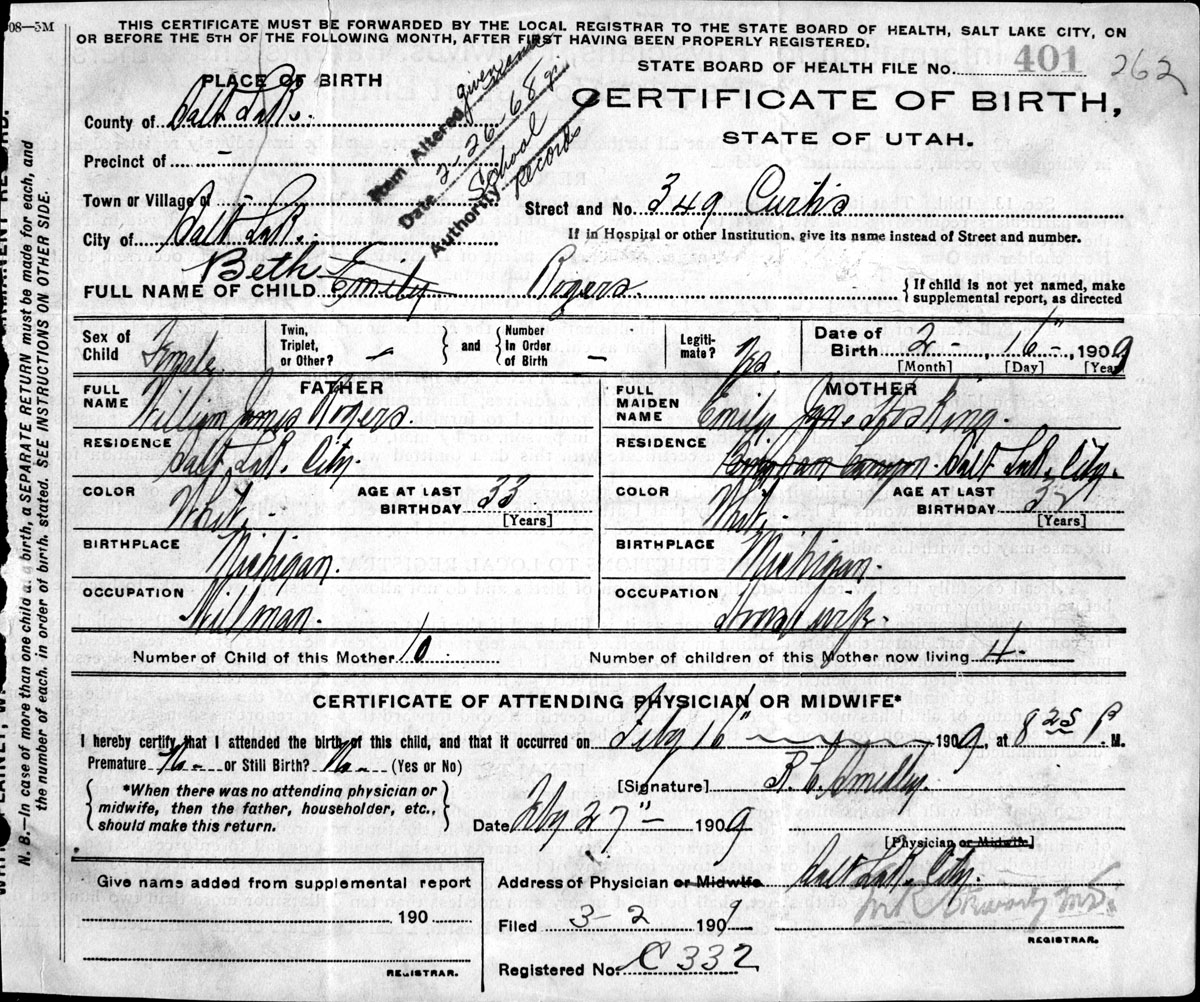 08—5M
THIS CERTIFICATE MUST BE FORWARDED BY THE LOCAL REGISTRAR TO THE STATE BOARD OF HEALTH, SALT LAKE CITY, ON
OR BEFORE THE 5TH OF THE FOLLOWING MONTH, AFTER FIRST HAVING BEEN PROPERLY REGISTERED.
STATE BOARD OF HEALTH FILE No. 401 262
PLACE OF BIRTH
Item Altered given name
Date 2-26-68
Authority School Records
CERTIFICATE OF BIRTH,
STATE OF UTAH.
County of Salt Lake.
Precinct of -
Town or Village of -
Street and No. 349 Curtis
City of Salt Lake.
If in Hospital or other Institution, give its name instead of Street and number.
Beth E
FULL NAME OF CHILD Emily Rogers.
{ If child is not yet named, make
supplemental report, as directed
Sex of Child Female
Twin, Triplet, or Other? - and Number In Order of Birth -
Legiti- mate? Yes
Date of Birth 2-, 16-, 1909
[Month] [Day] [Year]
FATHER
FULL NAME William James Rogers.
RESIDENCE Salt Lake City.
COLOR White.
AGE AT LAST BIRTHDAY 33
[Years]
BIRTHPLACE Michigan.
OCCUPATION Millman.
MOTHER
FULL MAIDEN NAME Emily Jane Hosking.
RESIDENCE Bingham Canyon. Salt Lake City.
COLOR White.
AGE AT LAST BIRTHDAY
[Years]
BIRTHPLACE Michigan.
OCCUPATION Housewife.
Number of Child of this Mother 10
Number of children of this Mother now living 4-
CERTIFICATE OF ATTENDING PHYSICIAN OR MIDWIFE*
I hereby certify that I attended the birth of this child, and that it occurred on Feby 16" 1909, at 8 25 P. M.
Premature No- or Still Birth? No- (Yes or No)
[Signature] R. C. Smedley
{ *When there was no attending physician or
midwife, then the father, householder, etc.,
should make this return. }
Date Feby 27"- 1909
[Physician or Midwife]
Address of Physician or Midwife Salt Lake City.
Give name added from supplemental report
190
REGISTRAR.
Filed 3-2 1909
M.D.
REGISTRAR.
Registered No. C 332
N. B.—In case of more than one child at a birth, a SEPARATE RETURN must be made for each, and
the number of each, in order of birth, stated. SEE INSTRUCTIONS ON OTHER SIDE.